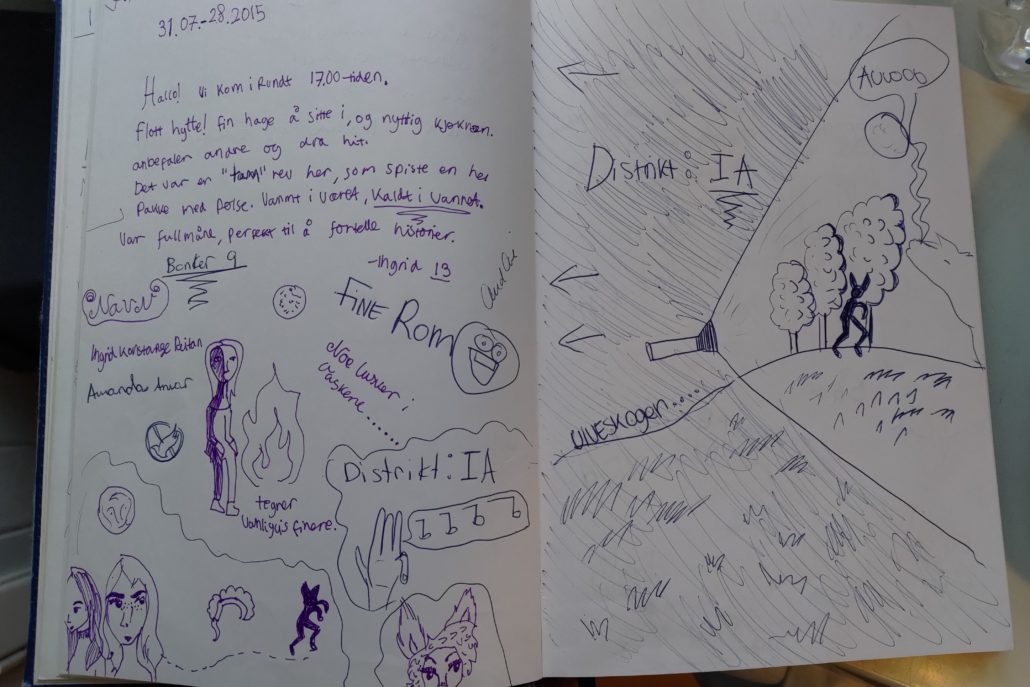 31.07.-28.2015
Hallo! Vi kom i Rundt 17.00-tiden.
Flott hytte! Fin hage å sitte i, og nyttig kjøkken.
anbefaler andre og dra hit.
Det var en "tam" rev her, som spiste en hel
Pakke med Pølse. Varmt i været, Kaldt i vannet.
Var fullmåne, perfekt til å fortelle historier.
Bonter 9
-Ingrid 13
NAVN
FINE ROM
Ingrid Reitan
Amanda
Noe i
.....
tegner
vanligvis finere.
Distrikt: IA
AUUOOO
Distrikt: IA
ULVESKOGEN.....